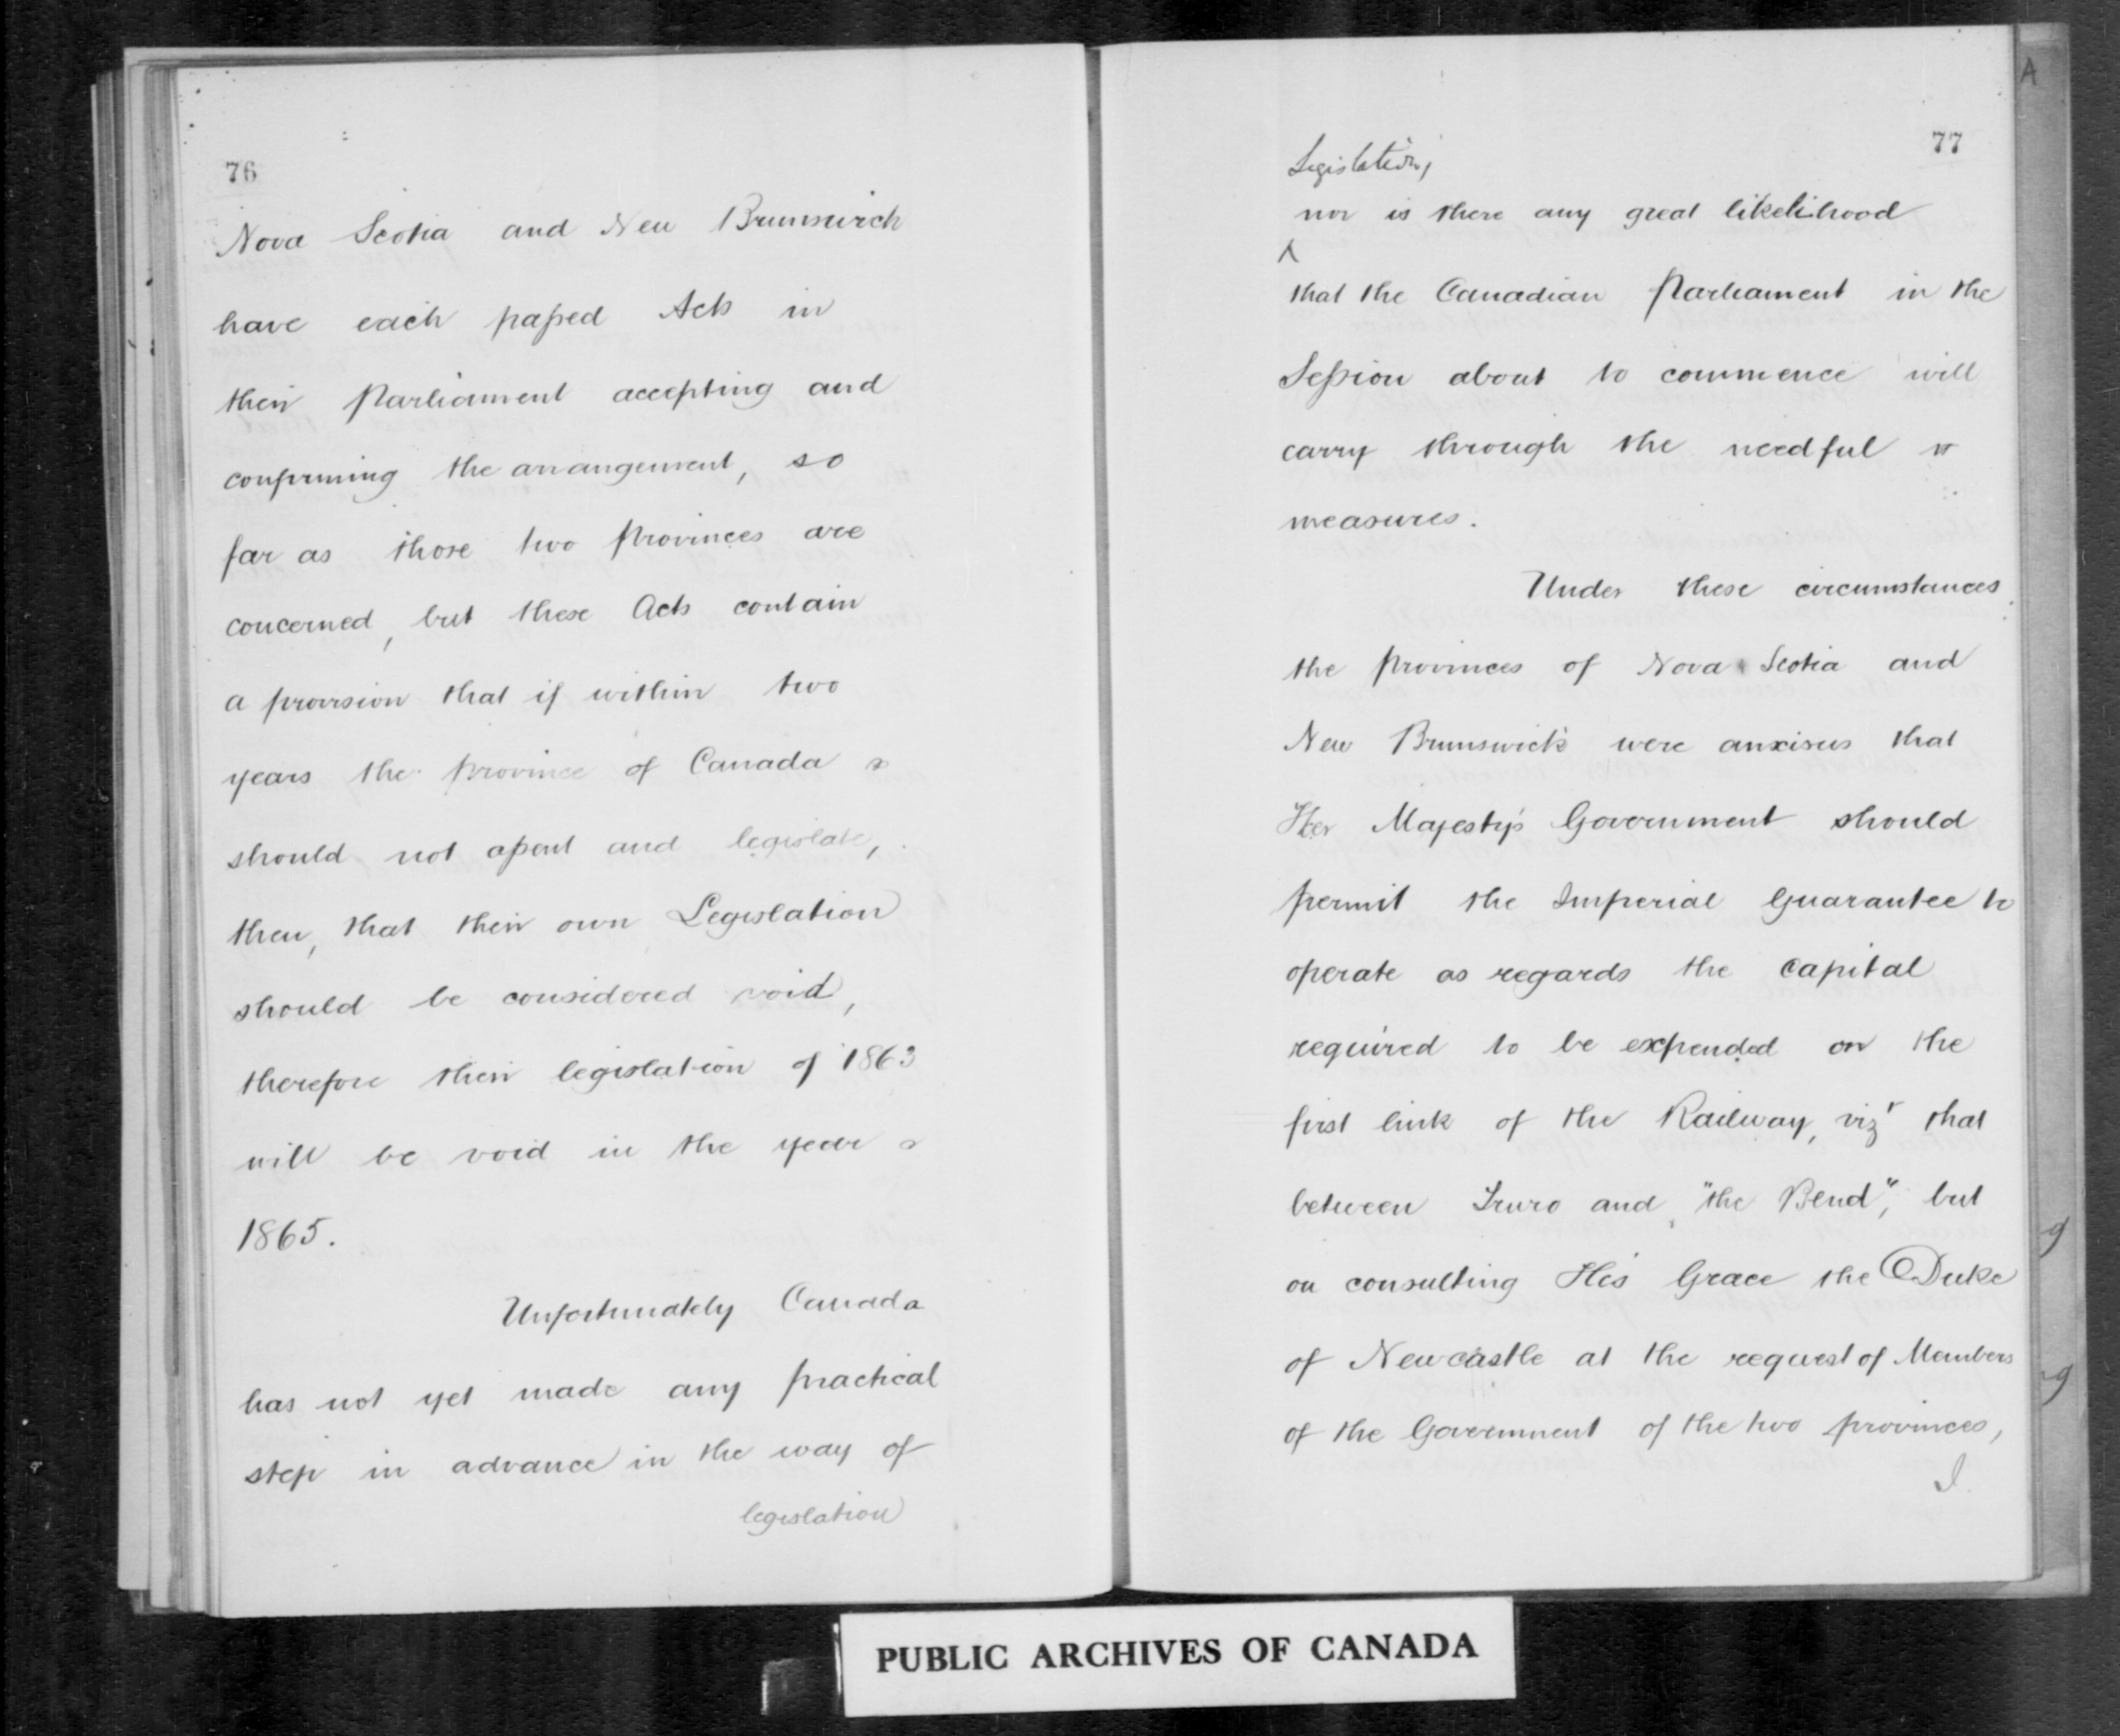 76
Nova Scotia and New Brunswick
have each passed Acts in
their Parliament accepting and
confirming the arrangement, so
far as those two provinces are
concerned, but these Acts contain
a provision that if within two
years the province of Canada
should not assent and legislate,
then, that their own Legislation
should be considered void,
therefore their legislation of 1863
will be void in the year
1865.
Unfortunately Canada
has not yet made any practical
step in advance in the way of
legislation
77
Legislation,
nor is there any great likelihood
that the Canadian Parliament in the
Session about to commence will
carry through the needful
measures.
Under these circumstances
the provinces of Nova Scotia and
New Brunswick were anxious that
Her Majesty's Government should
permit the Imperial Guarantee to
operate as regards the capital
required to be expended on the
first link of the Railway, vizt that
between Truro and, "the Bend", but
on consulting His Grace the Duke
of Newcastle at the request of Members
of the Government of the two provinces,
I
A
g
g
PUBLIC ARCHIVES OF CANADA